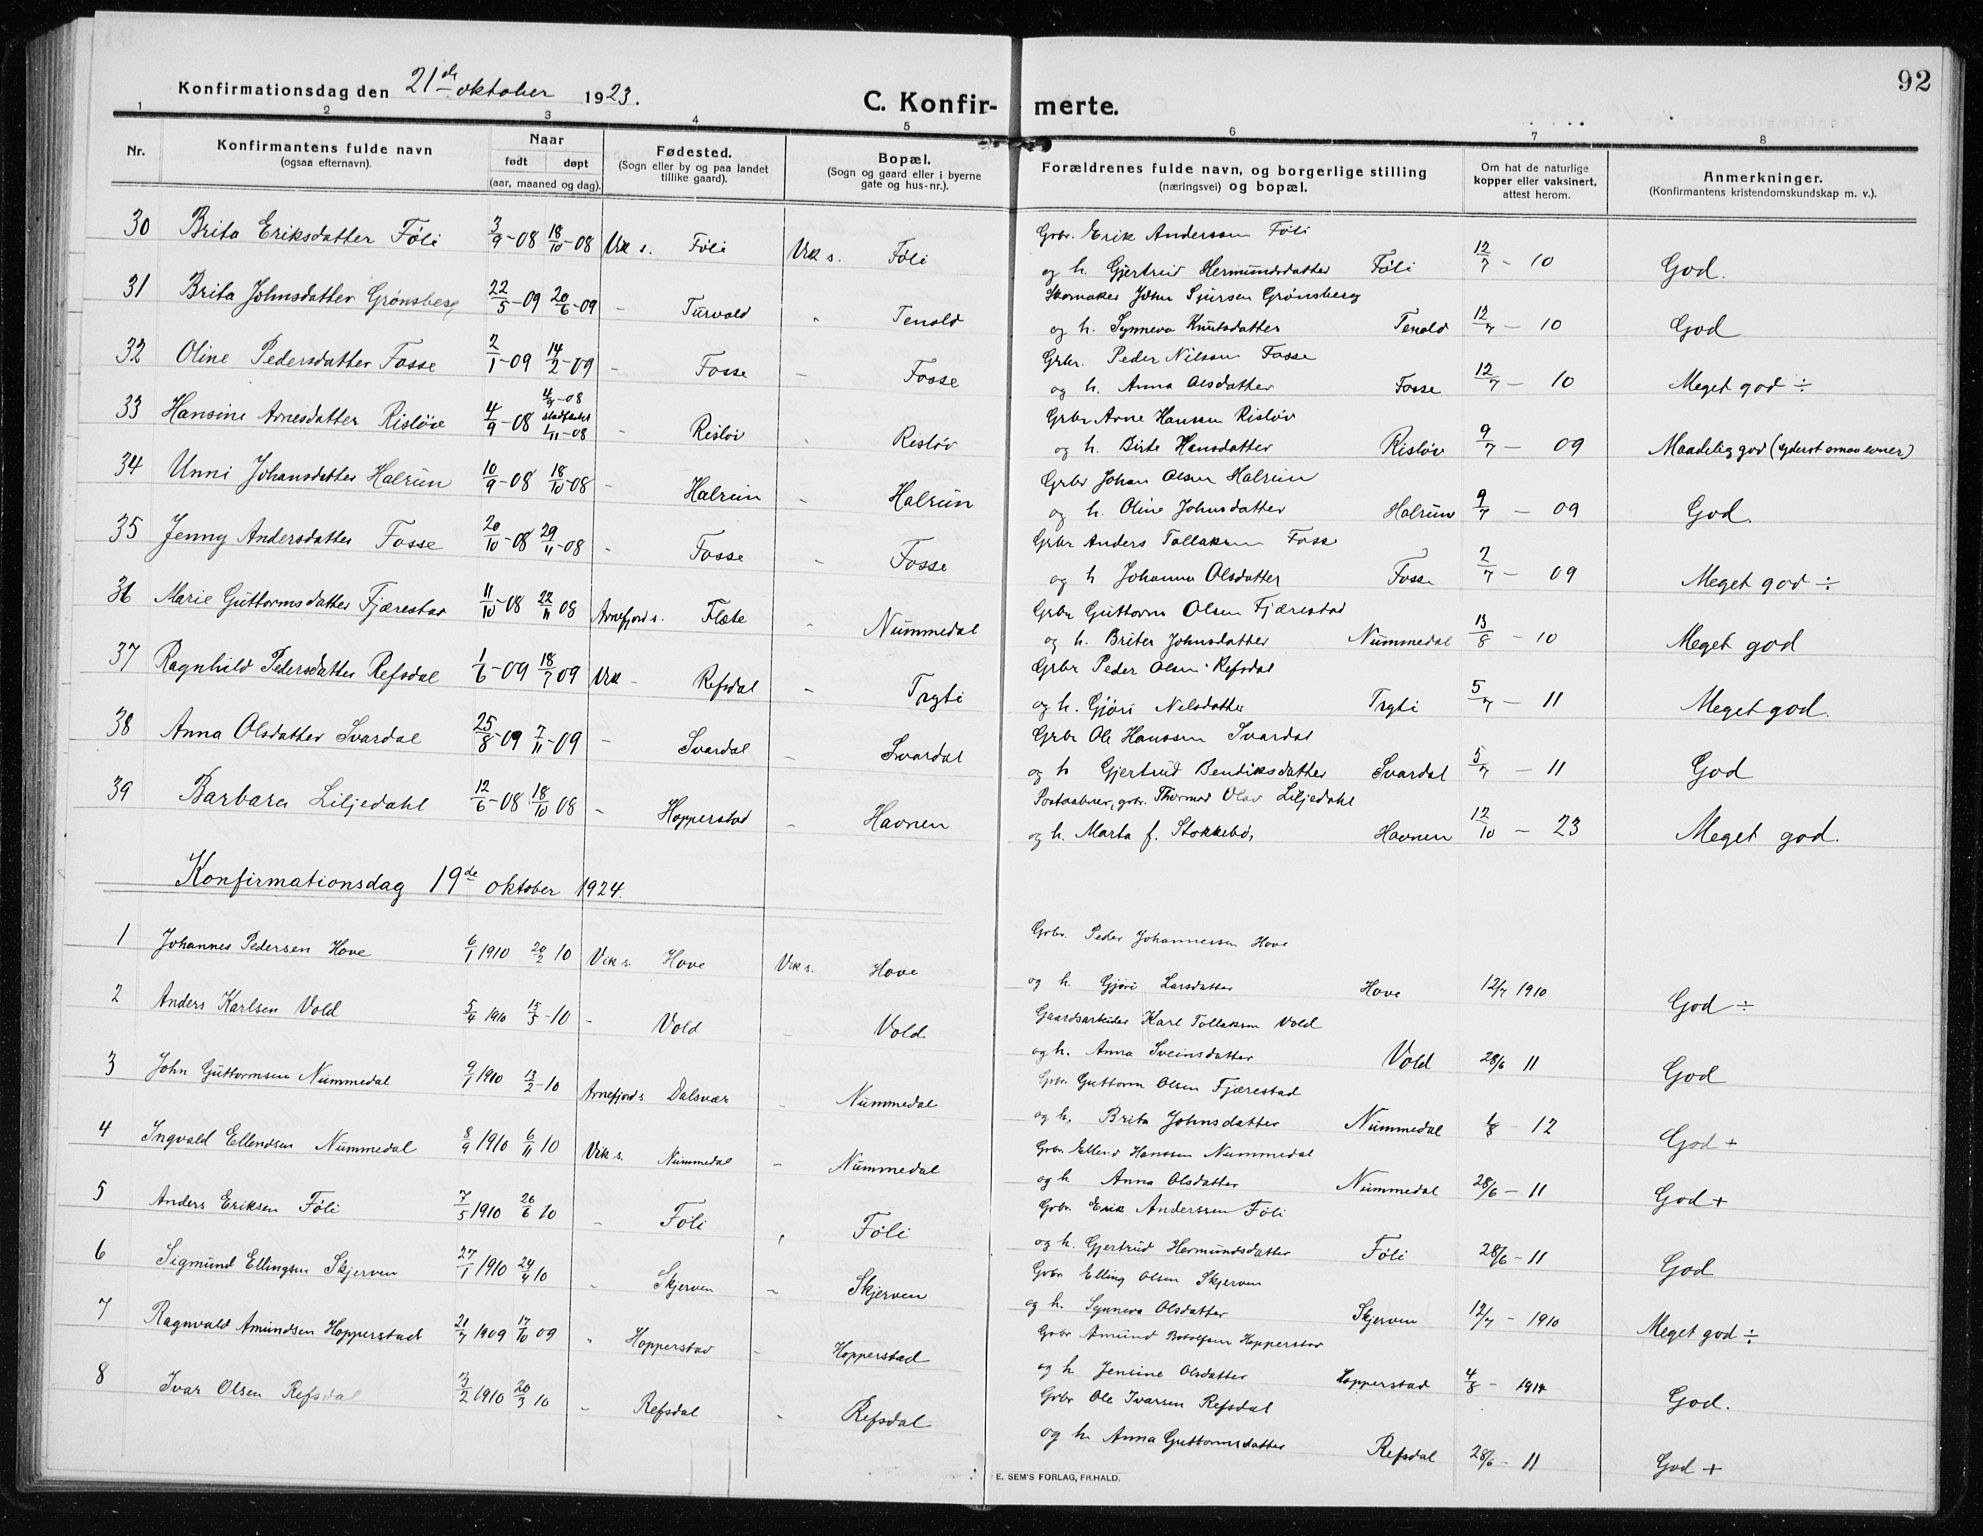 92
Konfirmationsdag den 21de oktober 1923.
C. Konfir- merte.
1 2 3 4 5 6 7 8
Nr. Konfirmantens fulde navn (ogsaa efternavn). Naar født døpt (aar, maaned og dag). Fødested. (Sogn eller by og paa landet tillike gaard). Bopæl. (Sogn og gaard eller i byerne gate og hus-nr.). Forældrenes fulde navn, og borgerlige stilling (næringsvei) og bopæl. Om hat de naturlige kopper eller vaksinert, attest herom. Anmerkninger. (Konfirmantens kristendomskundskap m. v.).
30 Brita Eriksdatter Føli 3/9-08 18/10-08 Vik s. Føli Vik s. Føli Grbr. Erik Anderssen Føli
og h. Gjertrud Hermundsdatter Føli 12/7 - 10 God.
31 Brita Johnsdatter Grønsberg 22/5-09 20/6-09 - Turvold " Tenold Skomaker John Sjursen Grønsberg
og h. Synneva Knutsdatter Tenold 12/7 - 10 God
32 Oline Pedersdatter Fosse 2/1-09 14/2-09 - Fosse - Fosse Grbr. Peder Nilssen Fosse
og h. Anna Olsdatter Fosse 12/7 - 10 Meget god ÷
33 Hansine Arnesdatter Risløv 4/9-08 4/9-08 stadfestet 1/11-08 - Risløv " Risløv Grbr Arne Hanssen Risløv
og h. Birte Hansdatter Risløv 9/7 - 09 Maadelig god (yderst smaa evner)
34 Unni Johansdatter Halrun 10/9-08 18/10-08 - Halrun " Halrun Grbr Johan Olsen Halrun
og h. Oline Johnsdatter Halrun 9/7 - 09 God.
35 Jenny Andersdatter Fosse 20/10-08 29/11-08 - Fosse " Fosse Grbr Anders Tollaksen Fosse
og h Johanna Olsdatter Fosse 7/7 - 09 Meget god ÷
36 Marie Guttormsdatter Fjærestad 11/10-08 22/11 08 Arnefjord s. Flæte " Nummedal Grbr Guttorm Olsen Fjærestad
og h. Brita Johnsdatter Nummedal 13/8 - 10 Meget god
37 Ragnhild Pedersdatter Refsdal 1/6-09 18/7 09 Vik - Refsdal " Trgti Grbr Peder Olsen Refsdal
og h. Gjøri Nilsdatter Trgti 5/7 - 11 Meget god.
38 Anna Olsdatter Svardal 25/8-09 7/11-09 - Svardal - Svardal Grbr Ole Hanssen Svardal
og h Gjertrud Bendiksdatter Svardal 5/7 - 11 God
39 Barbara Liljedahl 12/6-08 18/10 08 - Hopperstad - Havnen Postaabner, grbr. Thormod Olav Liljedahl
og h. Marta f. Stokkebø, Havnen 12/10 - 23 Meget god.
Konfirmationsdag 19de oktober 1924.
1 Johannes Pedersen Hove 6/1 1910 20/2 10 Vik s. Hove Vik s. Hove Grbr. Peder Johannessen Hove
og h. Gjøri Larsdatter Hove 12/7 1910 God ÷
2 Anders Karlsen Vold 5/4 1910 15/5-10 - Vold - Vold Gaardsarbeider Karl Tollaksen Vold
og h. Anna Sveinsdatter Vold 28/6 11 God
3 John Guttormsen Nummedal 9/1 1910 13/2-10 Arnefjord s Dalsvær - Nummedal Grbr Guttorm Olsen Fjærestad
og h. Brita Johnsdatter Nummedal 1/8 - 12 God +
4 Ingvald Ellendsen Nummedal 8/9 1910 6/11 10 Vik s. Nummedal - Nummedal Grbr. Ellend Hanssen Nummedal
og h Anna Olsdatter Nummedal 28/6 - 11 God +
5 Anders Eriksen Føli 7/5 1910 26/6 10 - Føli " Føli Grbr. Erik Anderssen Føli
og h. Gjertrud Hermundsdatter Føli 28/6 - 11 God
6 Sigmund Ellingsen Skjerven 27/1 1910 24/4 10 " Skjerven " Skjerven Grbr Elling Olsen Skjerven
og h. Synneva Olsdatter Skjerven 12/7 - 1910 Meget god ÷
7 Ragnvald Amundsen Hopperstad 21/7 1909 17/10 09 " Hopperstad - Hopperstad Grbr Amund Botolfsen Hopperstad
og h Jensine Olsdatter Hopperstad 4/8 - 1914 God.
8 Ivar Olsen Refsdal 3/2 1910 20/3 10 " Refsdal " Refsdal Grbr Ole Ivarsen Refsdal
og h. Anna Guttormsdatter Refsdal 28/6 - 11 God +
E. SEM'S FORLAG, FR.HALD.